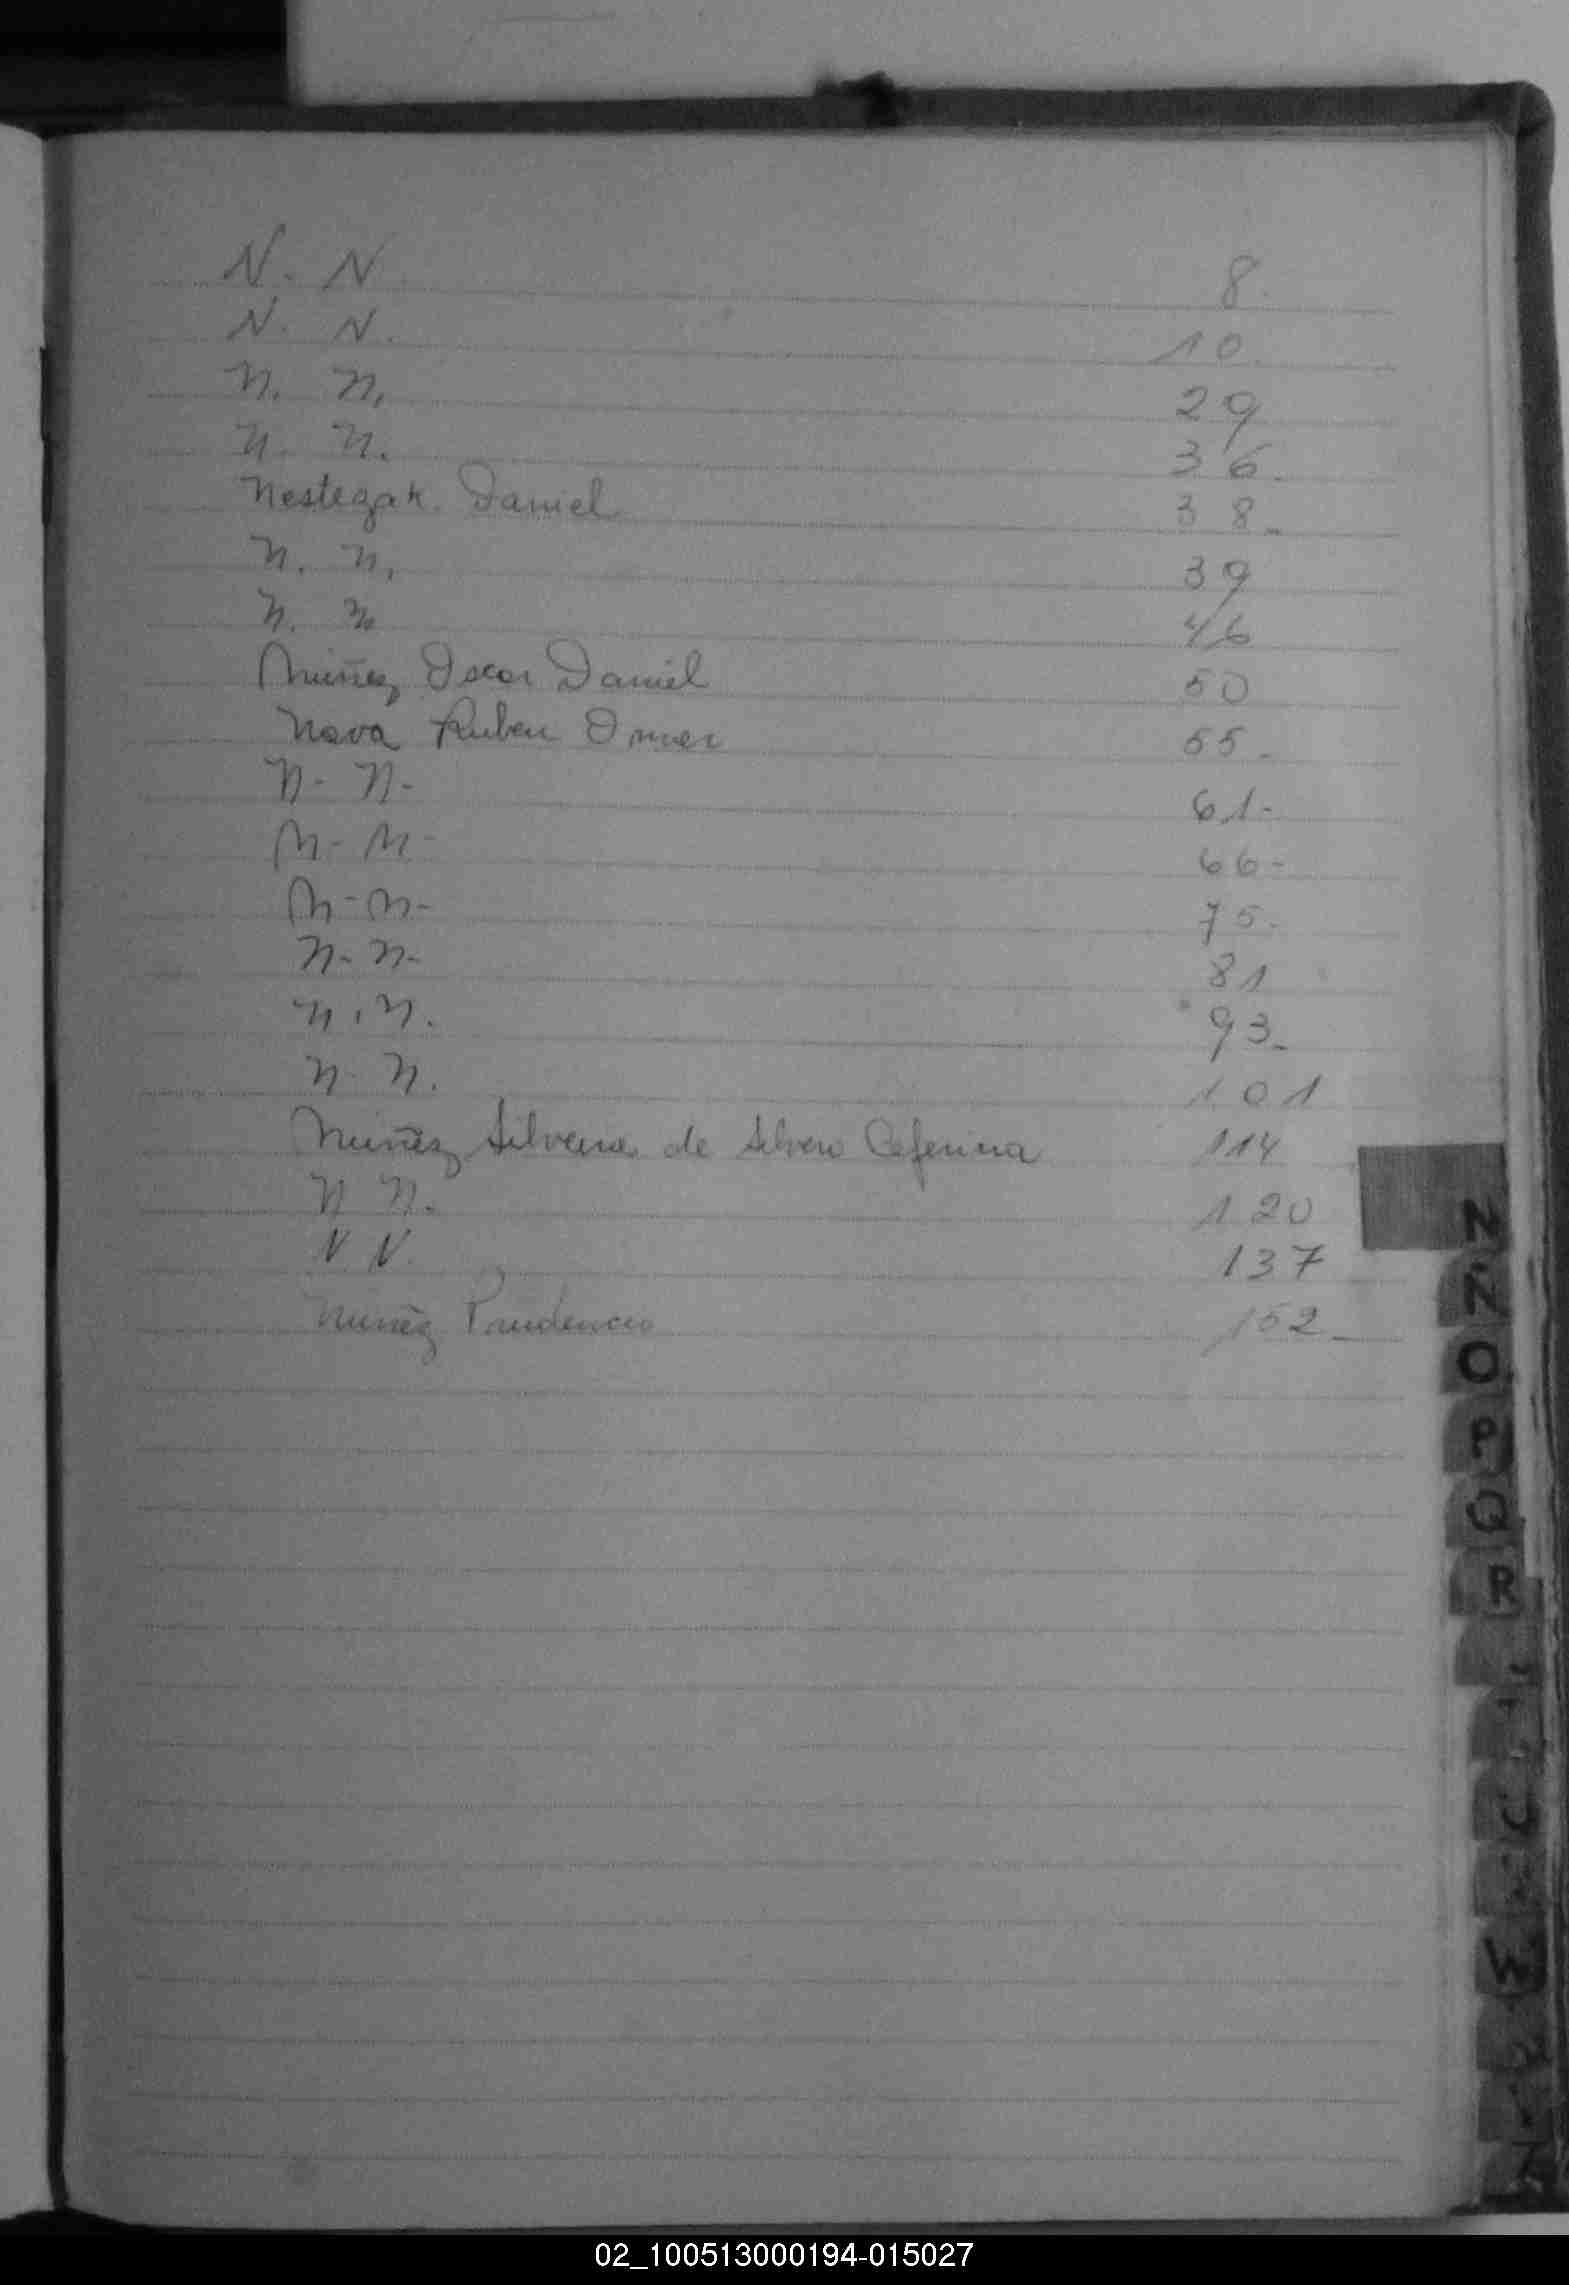 N. N. 8.
N. N. 10.
N. N. 29
N. N. 36.
Nestegak. Daniel 38_
N. N. 39
N. N. 46
Nuñez Oscar Daniel 50
Nava Ruben Omer 55_
N- N- 61-
N- N- 66-
N- N- 75-
N- N- 81
N. N. 93_
N- N. 101
Nuñez Silveira de Silvero Ceferina 114
N N. 120
N N. 137
Nuñez Prudencio 152_
N
Ñ
O
P
Q
R
U
W
Z
02_100513000194-015027